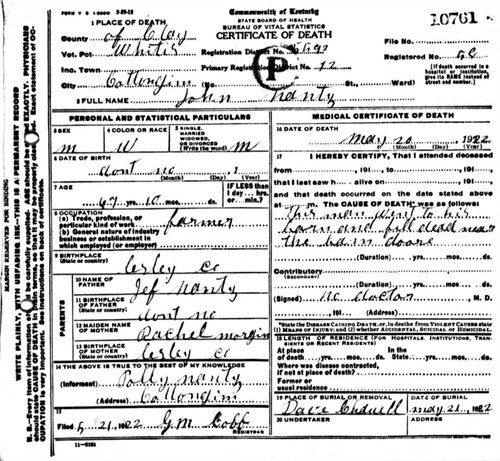 FORM V S 1-500M 3-29-12
Commonwealth of Kentucky
STATE BOARD OF HEALTH
BUREAU OF VITAL STATISTICS
CERTIFICATE OF DEATH
10761
1 PLACE OF DEATH
County of Clay
Vot. Pct White
Registration District No.
File No.
Inc. Town
Primary Registration District No. 12
Registered No.
City
(No. St., Ward)
(If death occurred in a hospital or institution, give its NAME instead of street and number.)
P
2 FULL NAME John Nantz
PERSONAL AND STATISTICAL PARTICULARS
3 SEX m
4 COLOR OR RACE W
5 SINGLE, MARRIED, WIDOWED, OR DIVORCED (Write the word) m
6 DATE OF BIRTH
dont no, 1
(Month) (Day) (Year)
7 AGE
yrs. 10 mos. ds.
IF LESS than 1 day,.... hrs. or.... min.?
8 OCCUPATION
(a) Trade, profession, or particular kind of work farmer
(b) General nature of industry business or establishment in which employed (or employer)
9 BIRTHPLACE
(State or country) Lesley Co
PARENTS
10 NAME OF FATHER Jef Nantz
11 BIRTHPLACE OF FATHER
(State or country) dont no
12 MAIDEN NAME OF MOTHER Rachel morgin
13 BIRTHPLACE OF MOTHER
(State or country) Lesley Co
14 THE ABOVE IS TRUE TO THE BEST OF MY KNOWLEDGE
(Informant) Polly Nantz
(Address)
15
Filed 5-21, 1922 G.M. Cobb
REGISTRAR
11-9104
MEDICAL CERTIFICATE OF DEATH
16 DATE OF DEATH
may 20, 1922
(Month) (Day) (Year)
17 I HEREBY CERTIFY, That I attended deceased
from , 191 , to , 191 ,
that I last saw h alive on , 191 ,
and that death occurred on the date stated above
at m. The CAUSE OF DEATH* was as follows:
This man went to his
barn and fell dead near
the barn doors
(Duration) yrs. mos. ds.
Contributory
(Secondary)
(Duration) yrs. mos. ds.
(Signed) no doctor, M. D.
, 191 (Address)
*State the DISEASE CAUSING DEATH, or, in deaths from VIOLENT CAUSES state (1) MEANS OF INJURY; and (2) whether ACCIDENTAL, SUICIDAL or HOMICIDAL.
18 LENGTH OF RESIDENCE (FOR HOSPITALS, INSTITUTIONS, TRANSIENTS OR RECENT RESIDENTS)
At place of death yrs. mos. ds. In the State yrs. mos. ds.
Where was disease contracted, if not at place of death?
Former or usual residence
19 PLACE OF BURIAL OR REMOVAL
DATE OF BURIAL
Dave Chdwell may 21, 1922
20 UNDERTAKER
ADDRESS
MARGIN RESERVED FOR BINDING
WRITE PLAINLY, WITH UNFADING INK—THIS IS A PERMANENT RECORD
N. B.—Every item of information should be carefully supplied. AGE should be stated EXACTLY. PHYSICIANS should state CAUSE OF DEATH in plain terms, so that it may be properly classified. Exact statement of OCCUPATION is very important. See instructions on back of certificate.